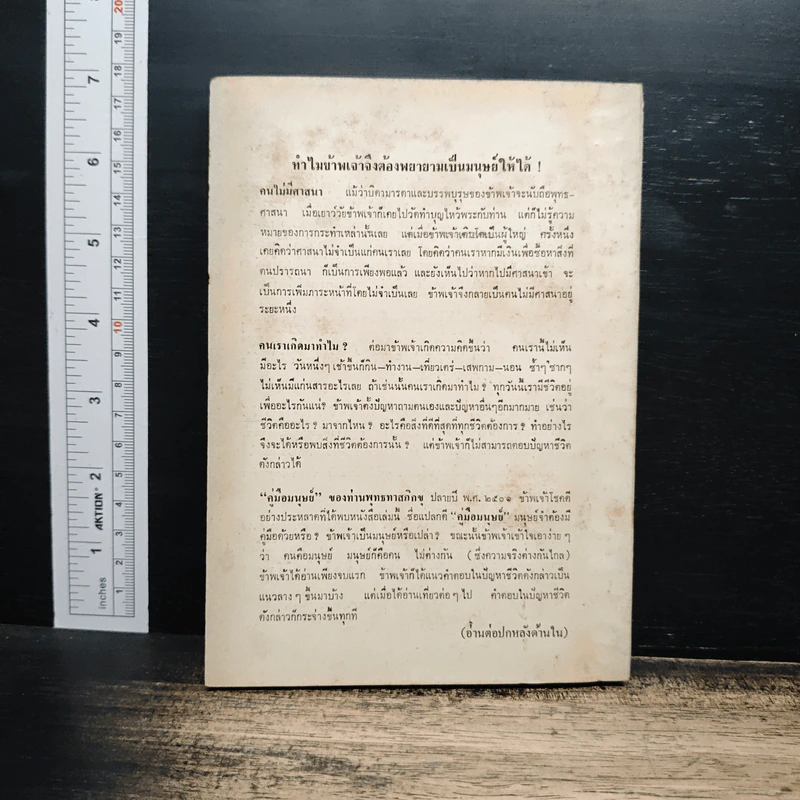 ทำไมข้าพเจ้าจึงต้องพยายามเป็นมนุษย์ให้ได้ !
คนไม่มีศาสนา แม้ว่าบิดามารดาและบรรพบุรุษของข้าพเจ้าจะนับถือพุทธ-
ศาสนา เมื่อเยาว์วัยข้าพเจ้าก็เคยไปวัดทำบุญไหว้พระกับท่าน แต่ก็ไม่รู้ความ
หมายของการกระทำเหล่านั้นเลย แต่เมื่อข้าพเจ้าเติบโตเป็นผู้ใหญ่ ครั้งหนึ่ง
เคยคิดว่าศาสนาไม่จำเป็นแก่คนเราเลย โดยคิดว่าคนเราหากมีเงินเพื่อซื้อหาสิ่งที่
ตนปรารถนา ก็เป็นการเพียงพอแล้ว และยังเห็นไปว่าหากไปมีศาสนาเข้า จะ
เป็นการเพิ่มภาระหน้าที่โดยไม่จำเป็นเลย ข้าพเจ้าจึงกลายเป็นคนไม่มีศาสนาอยู่
ระยะหนึ่ง
คนเราเกิดมาทำไม ? ต่อมาข้าพเจ้าเกิดความคิดขึ้นว่า คนเรานี้ไม่เห็น
มีอะไร วันหนึ่งๆ เช้าขึ้นก็กิน—ทำงาน—เที่ยวเตร่—เสพกาม—นอน ซ้ำๆ ซากๆ
ไม่เห็นมีแก่นสารอะไรเลย ถ้าเช่นนั้นคนเราเกิดมาทำไม ? ทุกวันนี้เรามีชีวิตอยู่
เพื่ออะไรกันแน่ ? ข้าพเจ้าตั้งปัญหาถามตนเองและปัญหาอื่นๆอีกมากมาย เช่นว่า
ชีวิตคืออะไร ? มาจากไหน ? อะไรคือสิ่งที่ดีที่สุดที่ทุกชีวิตต้องการ ? ทำอย่างไร
จึงจะได้หรือพบสิ่งที่ชีวิตต้องการนั้น ? แต่ข้าพเจ้าก็ไม่สามารถตอบปัญหาชีวิต
ดังกล่าวได้
“คู่มือมนุษย์” ของท่านพุทธทาสภิกขุ ปลายปี พ.ศ. ๒๕๐๑ ข้าพเจ้าโชคดี
อย่างประหลาดที่ได้พบหนังสือเล่มนี้ ชื่อแปลกดี “คู่มือมนุษย์” มนุษย์จำต้องมี
คู่มือด้วยหรือ ? ข้าพเจ้าเป็นมนุษย์หรือเปล่า ? ขณะนั้นข้าพเจ้าเข้าใจเอาง่าย ๆ
ว่า คนคือมนุษย์ มนุษย์ก็คือคน ไม่ต่างกัน (ซึ่งความจริงต่างกันไกล)
ข้าพเจ้าได้อ่านเพียงจบแรก ข้าพเจ้าก็ได้แนวคำตอบในปัญหาชีวิตดังกล่าวเป็น
แนวลาง ๆ ขึ้นมาบ้าง แต่เมื่อได้อ่านเที่ยวต่อ ๆ ไป คำตอบในปัญหาชีวิต
ดังกล่าวก็กระจ่างขึ้นทุกที
(อ่านต่อปกหลังด้านใน)
inches
AKTION
1
2
3
4
5
6
7
10
20